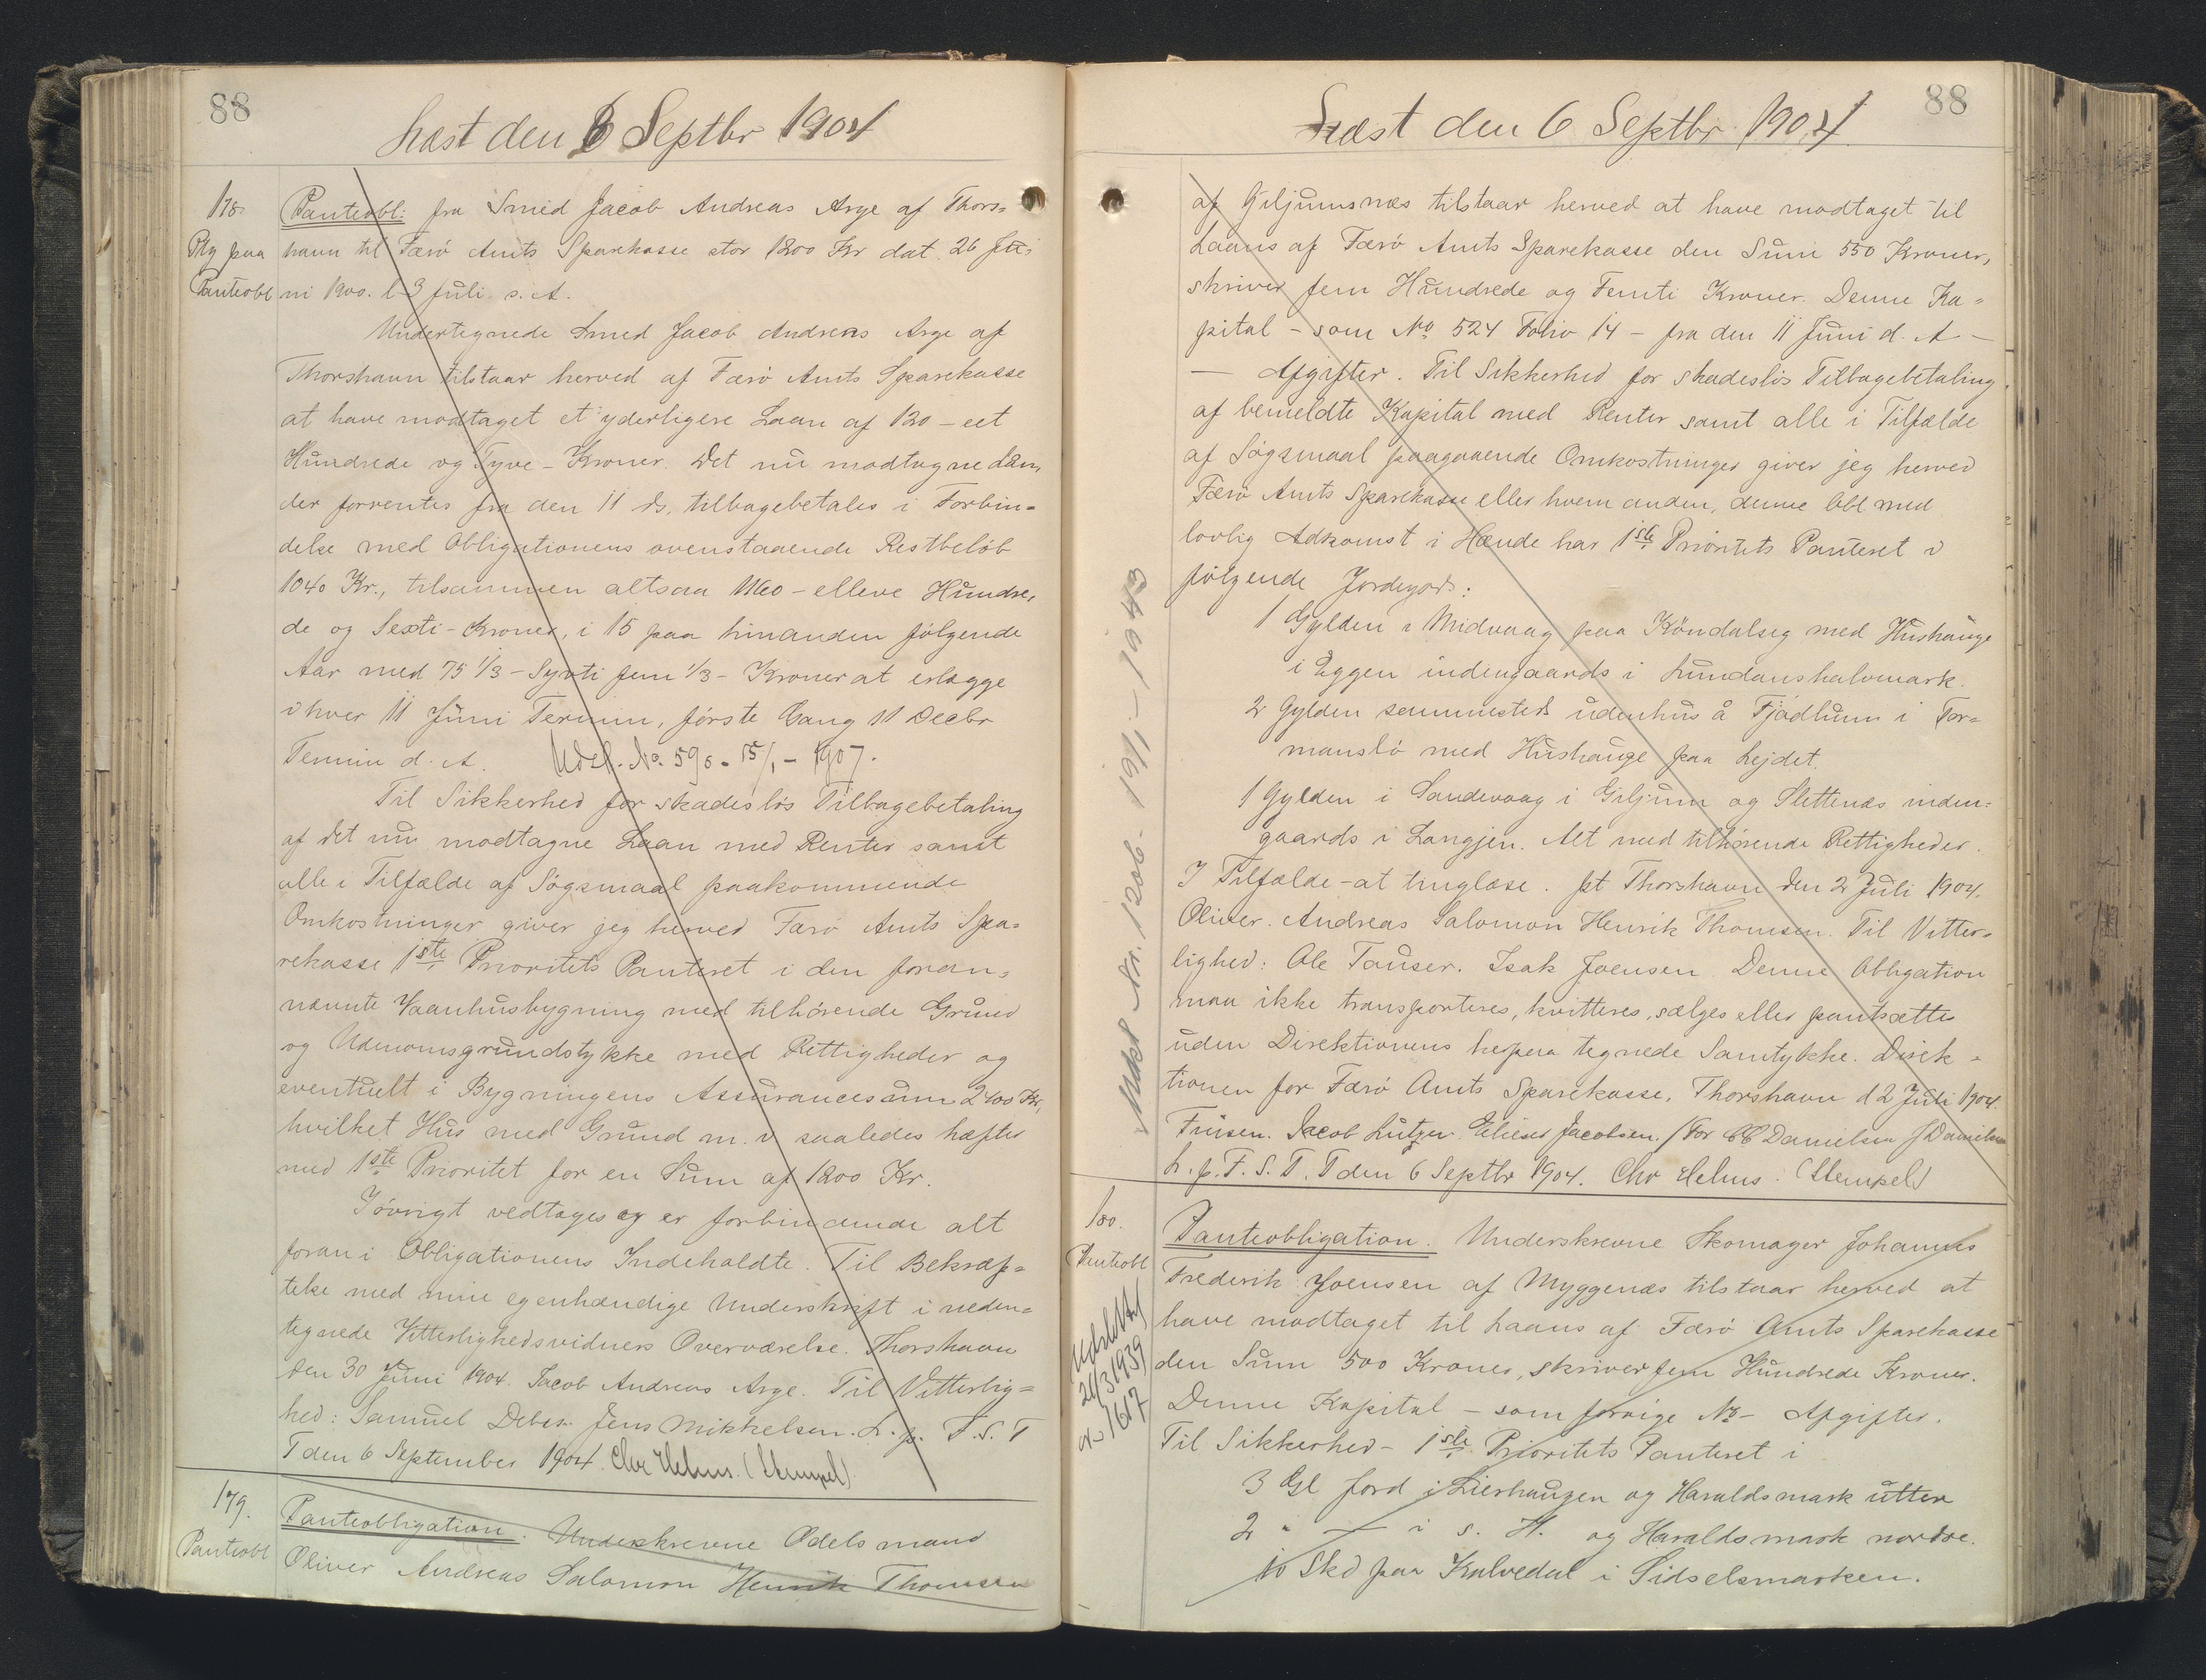 88
Læst den 6 Septbr 1904
178.
Ptg paa
Panteobl
Panteobl: fra Smed Jacob Andreas Arge af Thors=
havn til Færö Amts Sparekasse stor 1200 Kr dat. 26 Ju=
ni 1900. l. 3 Juli s. A.
Undertegnede Smed Jacob Andreas Arge af
Thorshavn tilstaar herved af Færö Amts Sparekasse
at have modtaget et yderligere Laan af 120 - eet
Hundrede og Tyve - Kroner. Det nu modtagne Laan,
der forrentes fra den 11 ds, tilbagebetales i Forbin=
delse med Obligationens ovenstaaende Restbelöb
1040 Kr., tilsammen altsaa 1160 - elleve Hundre,
de og Sexti - Kroner, i 15 paa hinanden fölgende
Aar med 75 1/3 - Syvti fem 1/3 - Kroner at erlægge
i hver 11 Juni Termin, förste Gang 11 Decbr
Termin d. A. Udsl. No. 590 - 15/1 - 1907.
Til Sikkerhed for skadeslös Tilbagebetaling
af det nu modtagne Laan med Renter samt
alle i Tilfælde af Sögsmaal paakommende
Omkostninger giver jeg herved Færö Amts Spa=
rekasse 1ste Prioritets Panteret i den foran=
nævnte Vaanhusbygning med tilhörende Grund
og Udenomsgrundstykke med Rettigheder og
eventuelt i Bygningens Assurancesum 2400 Kr,
hvilket Hus med Grund m. v. saaledes hæfter
med 1ste Prioritet for en Sum af 1200 Kr.
Iövrigt vedtages og er forbindende alt
foran i Obligationens Indeholdte. Til Bekræf=
telse med min egenhændige Underskrift i neden=
tegnede Vitterlighedsvidners Overværelse. Thorshavn
den 30 Juni 1904. Jacob Andreas Arge. Til Vitterlig=
hed: Samuel Debes. Jens Mikkelsen. L. p. F. S. T
T den 6 September 1904. Chr Helms. (Stempel).
179.
Panteobl
Panteobligation. Underskrevne Odelsmand
Oliver Andreas Salomon Henrik Thomsen
88
Læst den 6 Septbr 1904
af Giljumsnæs tilstaar herved at have modtaget til
Laans af Færö Amts Sparekasse den Sum 550 Kroner,
skriver fem Hundrede og Femti Kroner. Denne Ka=
pital - som No 524 Folio 14 - fra den 11 Juni d. A -
- Afgifter. Til Sikkerhed for skadeslös Tilbagebetaling
af bemeldte Kapital med Renter samt alle i Tilfælde
af Sögsmaal paagaaende Omkostninger giver jeg herved
Færö Amts Sparekasse eller hvem anden, denne Obl med
lovlig Adkomst i Hænde har 1ste Prioritets Panteret i
fölgende Jordegods:
1 Gylden i Midvaag paa Köndalseg med Hushauge
i Eggen indengaards i Lundanshalvmark.
2 Gylden sammesteds udenhus å Fjödlum i For=
manslö med Hushauge paa Lejdet.
1 Gylden i Sandevaag i Giljum og Slettenæs inden=
gaards i Langjen. Alt med tilhörende Rettigheder.
I Tilfælde - at tinglæse. pt Thorshavn den 2 Juli 1904.
Oliver Andreas Salomon Henrik Thomsen. Til Vitter=
lighed: Ole Tauser. Isak Joensen. Denne Obligation
maa ikke transporteres, kvitteres, sælges eller pantsættes
uden Direktionens herpaa tegnede Samtykke. Direk=
tionen for Færö Amts Sparekasse, Thorshavn d 2 Juli 1904.
Friisen. Jacob Lützen. Elieser Jacobsen. / For CC Danielsen J Danielsen
L. p. F. S. T. T den 6 Septbr 1904. Chr Helms. (Stempel)
Udsl. Nr. 1206 - 19/1 - 1943
180.
Panteobl
Udslettet
21/3 1939
No 1617
Panteobligation. Underskrevne Skomager Johannes
Frederik Joensen af Myggenæs tilstaar herved at
have modtaget til Laans af Færö Amts Sparekasse
den Sum 500 Kroner, skriver fem Hundrede Kroner.
Denne Kapital - som forrige No - Afgifter.
Til Sikkerhed - 1ste Prioritets Panteret i
3 Gl Jord i Lierhaugen og Haraldsmark utter
2 " - i s. H. og Haraldsmark nordre.
10 Skd paa Kalvedal i Sidselsmarken.